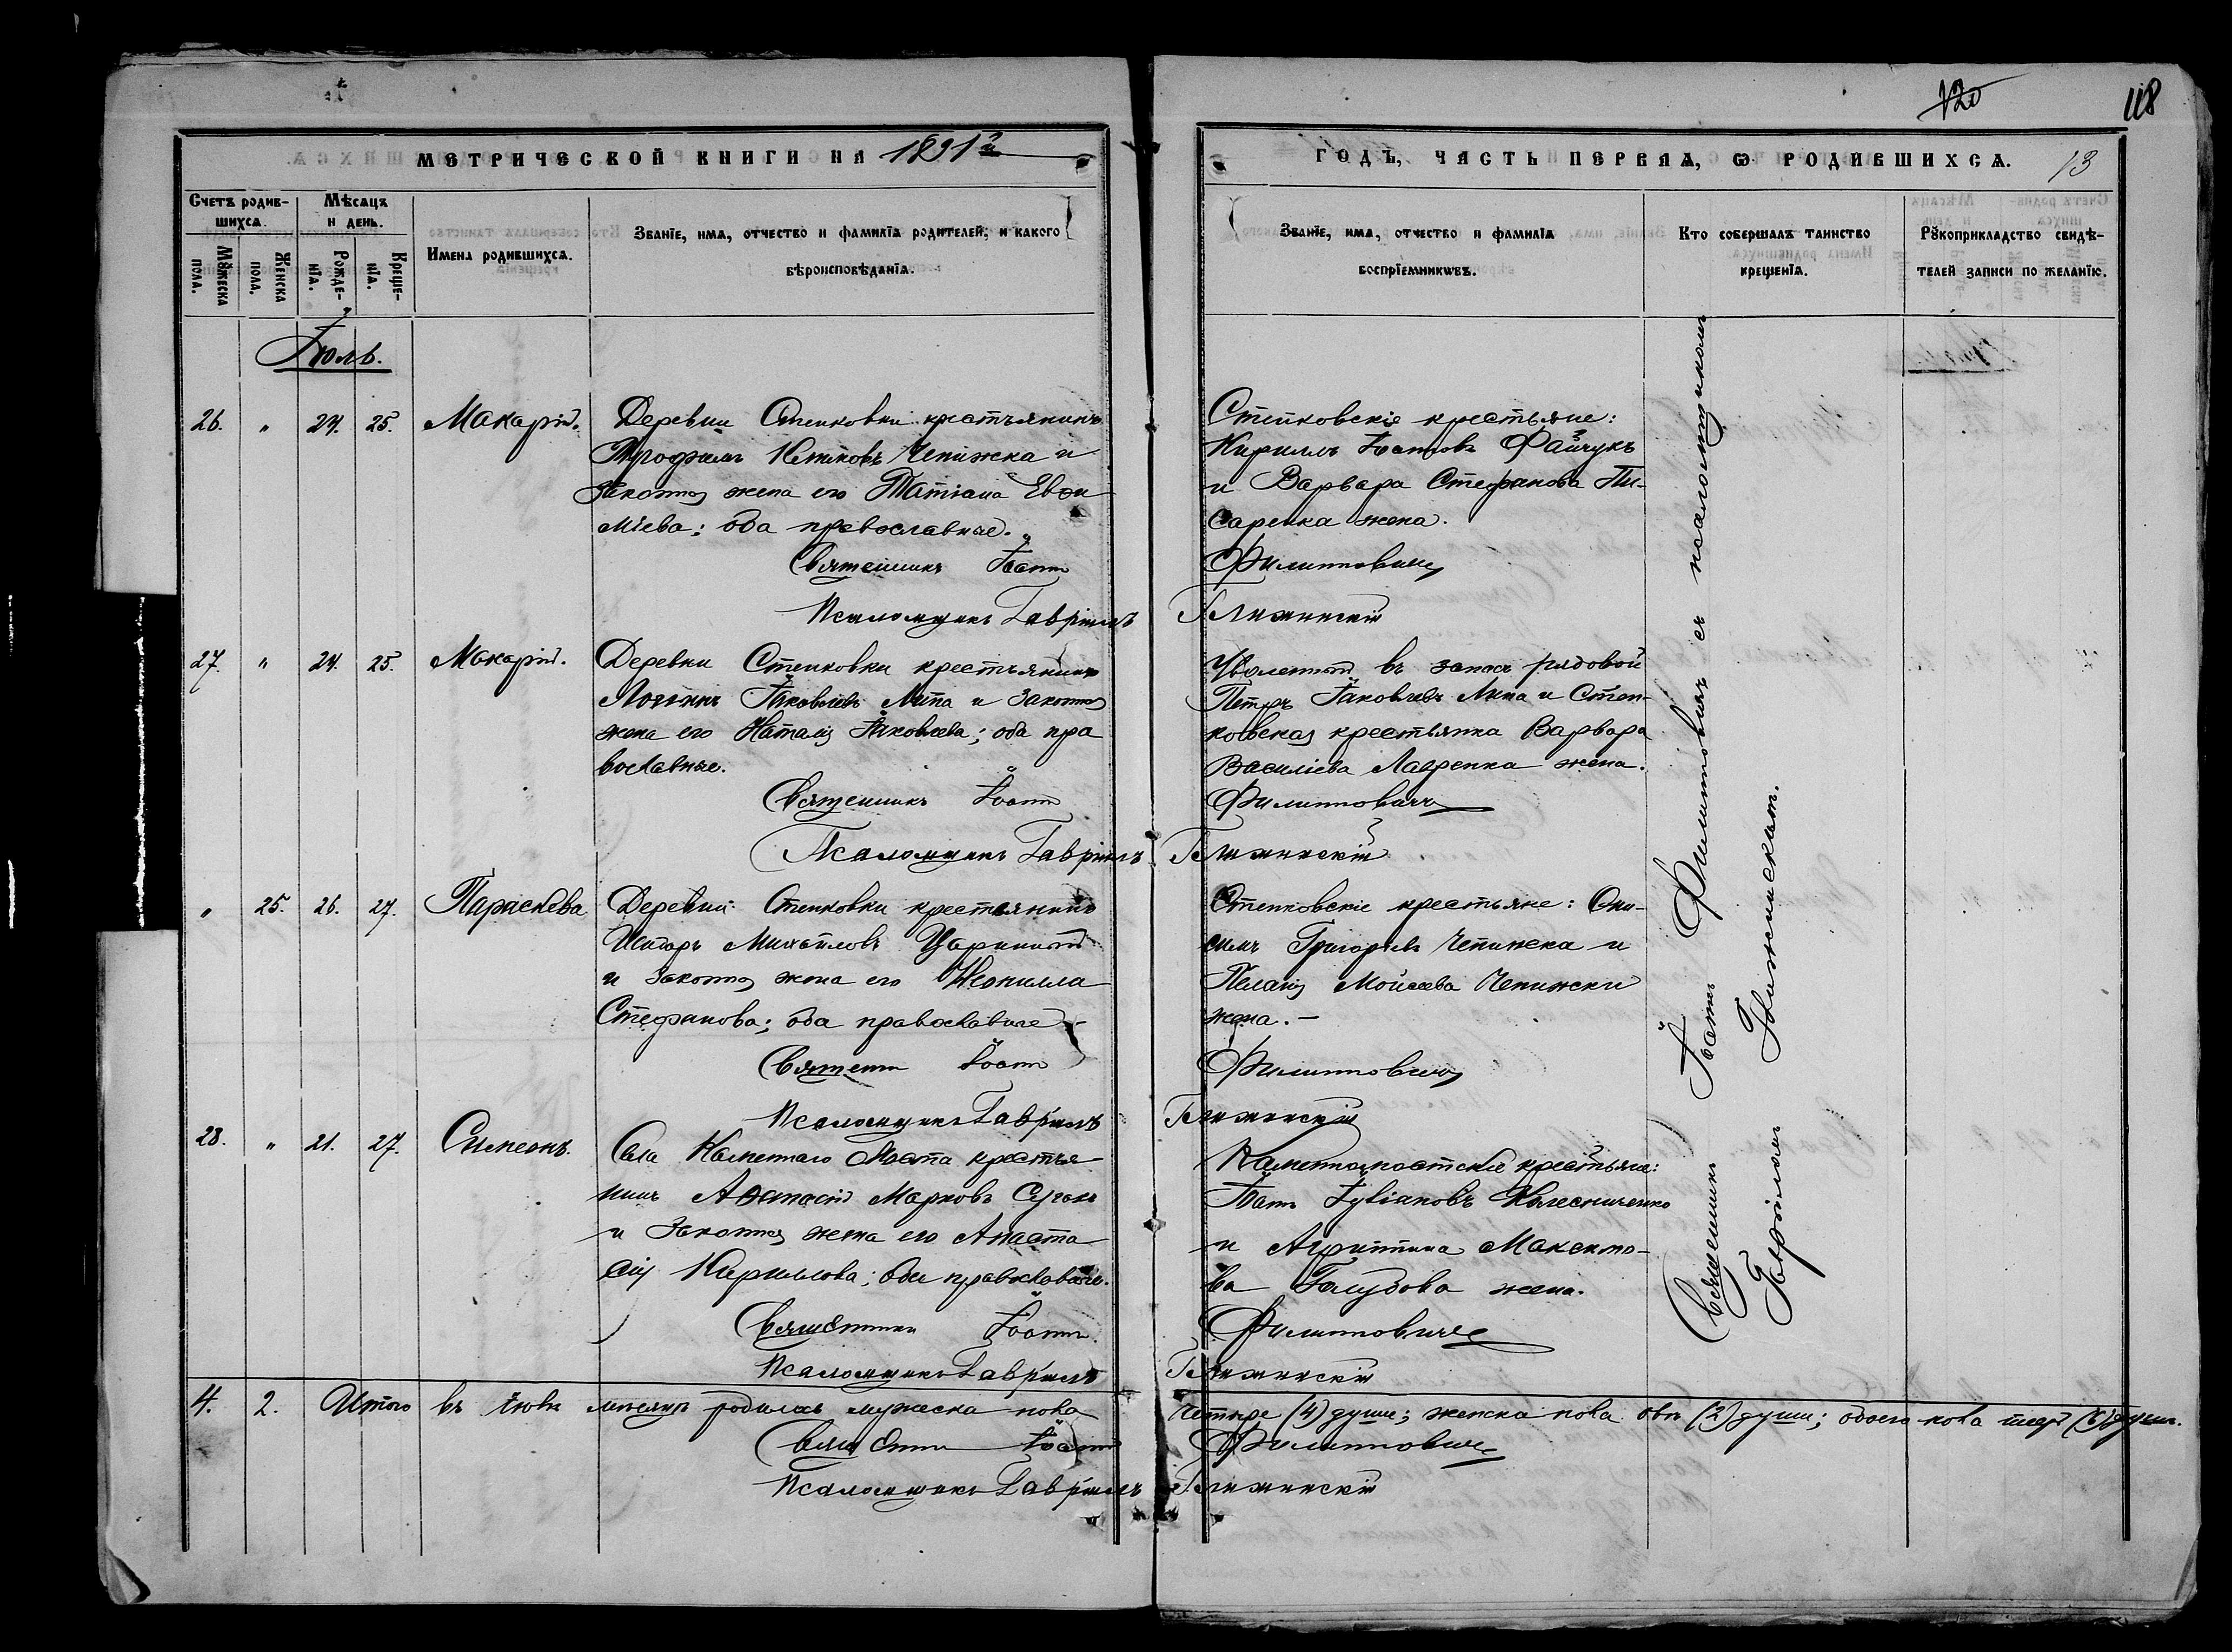 120
118
МЕТРИЧЕСКОЙ КНИГИ НА 1891й
ГОДЪ, ЧАСТЬ ПЕРВАѦ, Ѡ РОДИВШИХСѦ. 13
Счетъ родив-
шихсѧ.
Мѣсѧцъ
и день.
Мꙋжеска
пола.
Женска
пола.
Рожде-
нїѧ.
Креще-
нїѧ.
Имена родившихсѧ.
Званїе, имѧ, отчество и фамилїѧ родителей, и какого
вѣроисповѣданїѧ.
Званїе, имѧ, отчество и фамилїѧ
воспрїемникѡвъ.
Кто совершалъ таинство
крещенїѧ.
Рꙋкоприкладство свидѣ-
телей записи по желанїю.
Іюль.
26. " 24. 25. Макарій. Деревни Степковки крестьянинъ
Трофимъ Чепижка и
законная жена его Татіана Евѳи
міева; оба православные.
Священникъ Іоаннъ
Псаломщикъ Гавріилъ
Степковскіе крестьяне:
Кириллъ Файчукъ
и Варвара Стефанова Пи-
саренка жена.
Филипповичъ
Ближинскій
27. " 24. 25. Макарій. Деревни Степковки крестьянинъ
Логинъ Іаковлевъ Липа и законная
жена его Наталія Іаковлева; оба пра
вославные.
Священникъ Іоаннъ
Псаломщикъ Гавріилъ
Уволенный въ запасъ рядовой
Петръ Іаковлевъ Липа и Степ-
ковская крестьянка Варвара
Василіева Лавренка жена.
Филипповичъ
Ближинскій
" 25. 26. 27. Параскева Деревни Степковки крестьянинъ
Исидоръ Михаиловъ
и законная жена его Неонилла
Стефанова; оба православные
Священн Іоаннъ
Псаломщикъ Гавріилъ
Степковскіе крестьяне: Они-
симъ Григоріевъ Чепижка и
Пелагія Моисеева Чепижки
жена. -
Филипповичъ
Ближинскій
28. " 21. 27. Симеонъ. Села Каменнаго Моста крестья
нинъ Аѳанасій Марковъ
и законная жена его Анаста
сія Кириллова; оба православные.
Священникъ Іоаннъ
Псаломщикъ Гавріилъ
Каменномостскіе крестьяне:
Іоаннъ Іуліановъ Колесниченко
и Агриппина Максимо-
ва Голубова жена.
Филипповичъ
Ближинскій
Священникъ Іоаннъ Филипповичъ съ псаломщикомъ
Гавріиломъ Ближинскимъ.
4. 2. Итого въ іюлѣ мѣсяцѣ родилось мужеска пола
четыре (4) души; женска пола двѣ (2) души; обоего пола шесть (6) душъ.
Священн Іоаннъ
Филипповичъ
Псаломщикъ Гавріилъ
Ближинскій